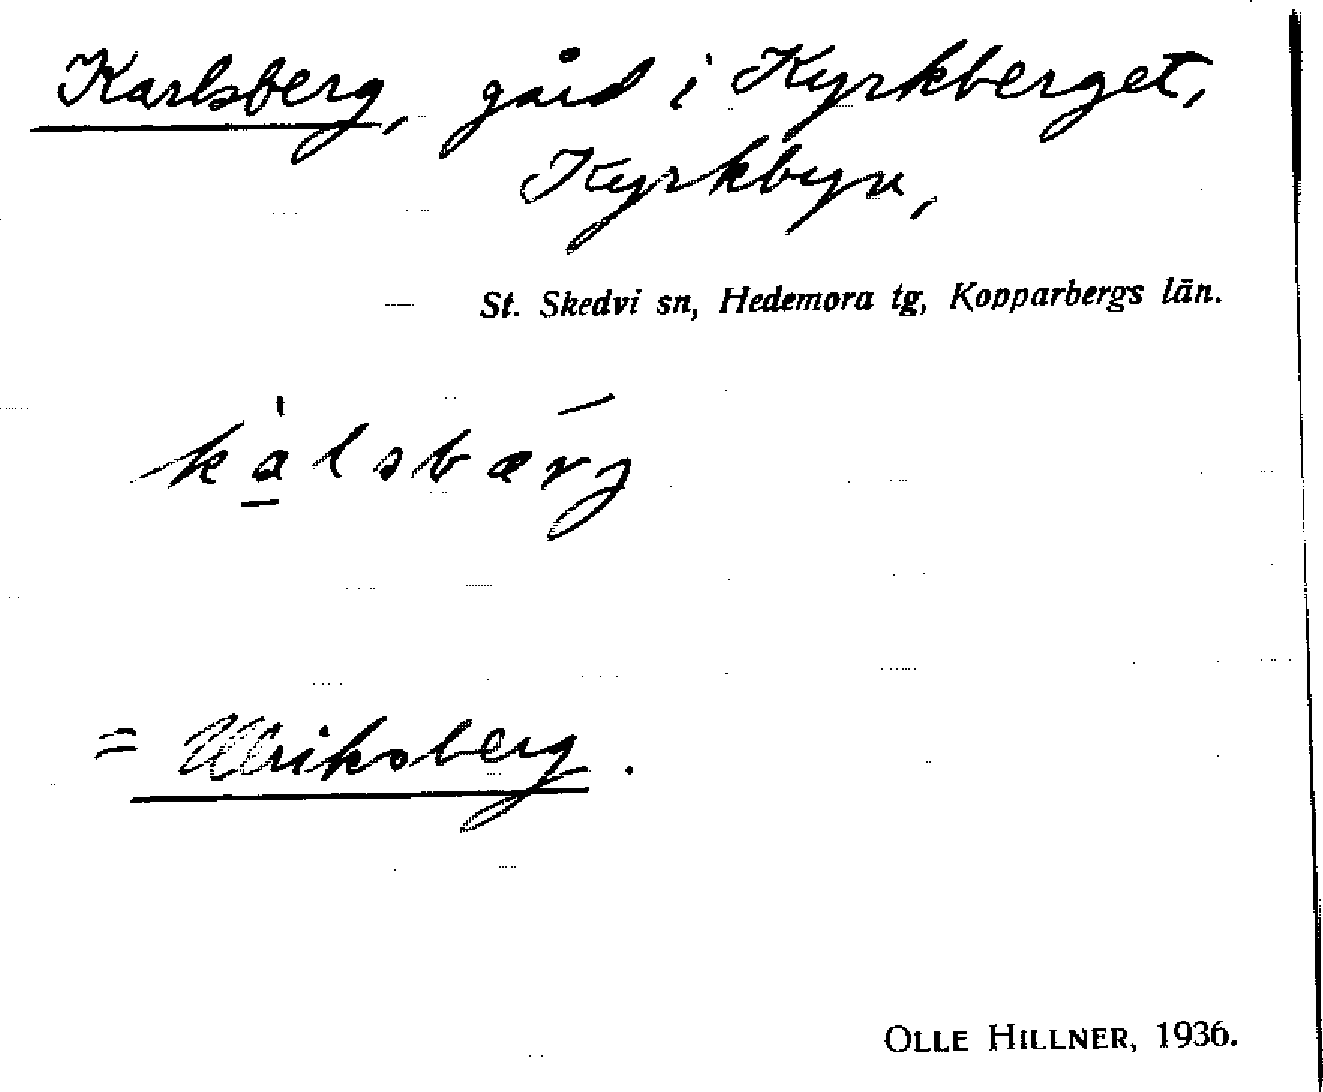 Karlsberg, gård i Kyrkberget,
Kyrkbyn,
— St. Skedvi sn, Hedemora tg, Kopparbergs län.
ka̲̍lsbærg
= Ulriksberg.
OLLE HILLNER, 1936.